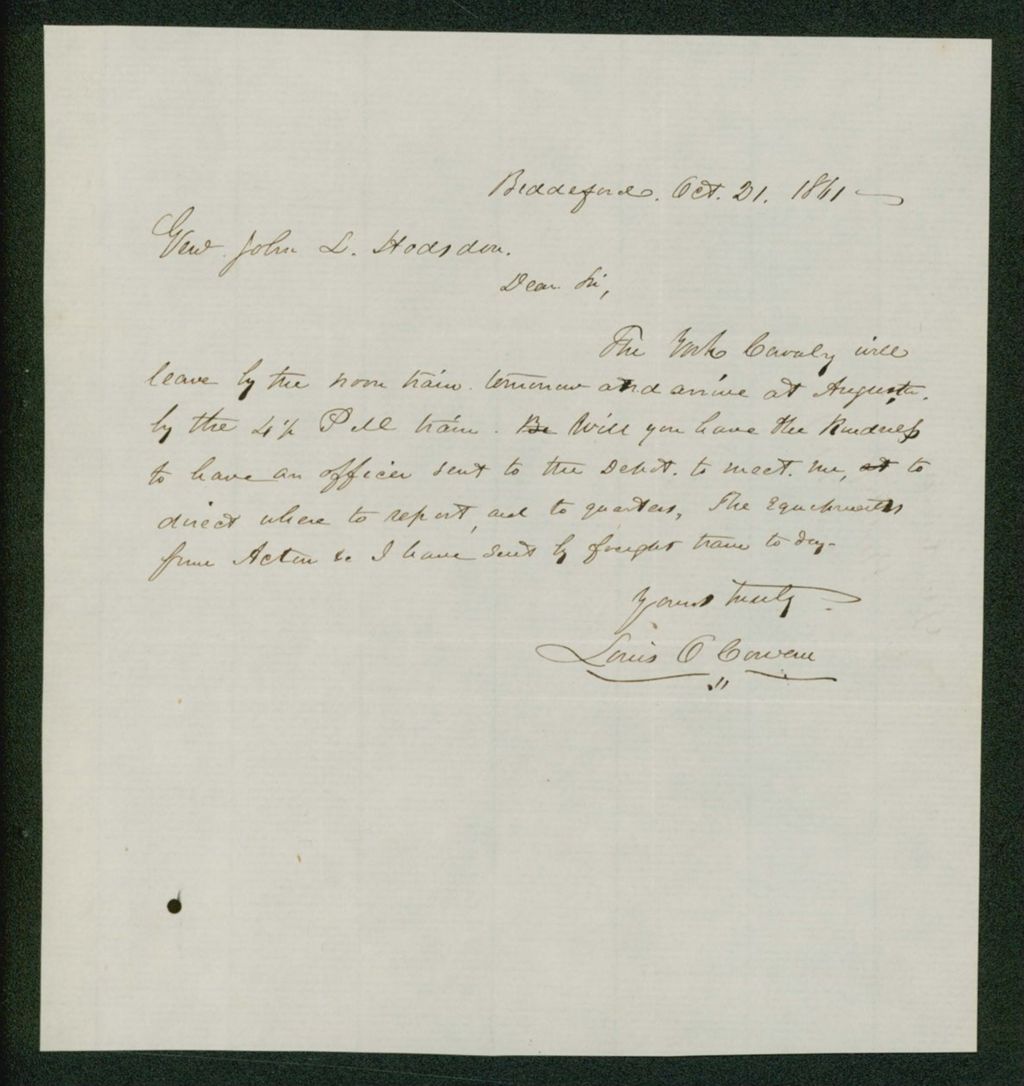 Biddeford. Oct. 21. 1861
Genl John L. Hodsdon.
Dear Sir,
The York Cavalry will
leave by the noon train tomorrow and arrive at Augusta.
by the 4½ P M train. Be Will you have the Kindness
to have an officer sent to the Depot. to meet me, at to
direct where to report, and to quarters, The Equipments
from Acton &c I have sent by freight train to day-
Yours truly
Louis O Cowan